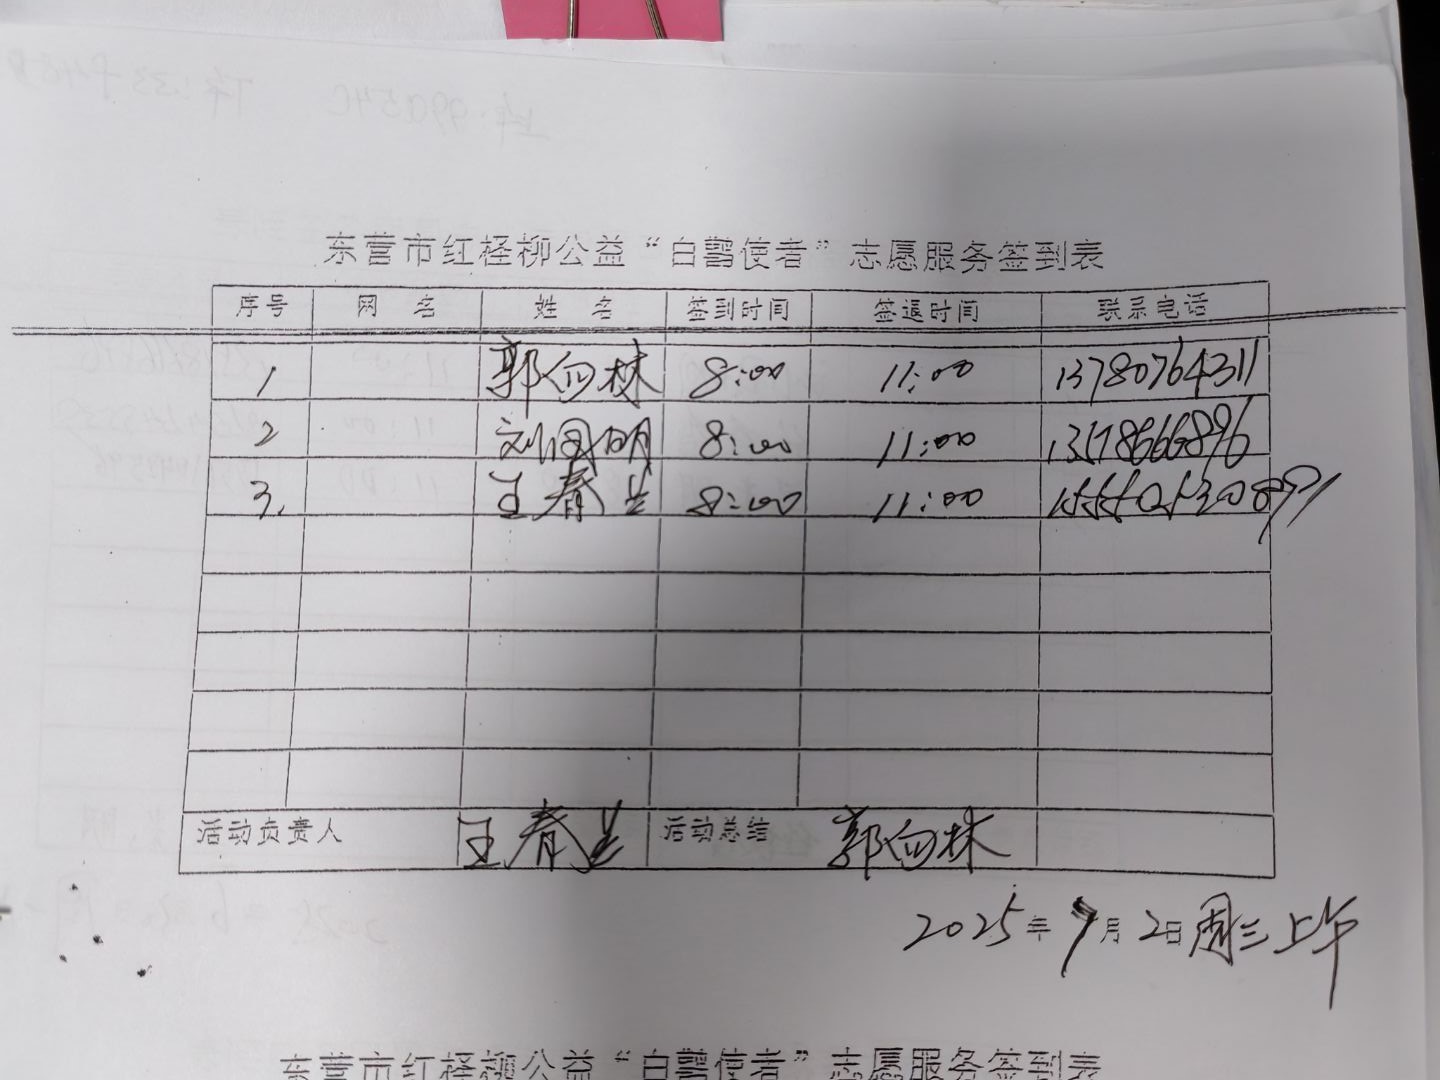 东营市红柽柳公益“白鹳使者”志愿服务签到表
序号 网 名 姓 名 签到时间 签退时间 联系电话
1 郭向林 8:00 11:00 13780764311
2 刘国明 8:00 11:00 13578666896
3. 王春生 8:00 11:00
活动负责人 王春生 活动总结 郭向林
2025年7月2日周三上午
东营市红柽柳公益“白鹳使者”志愿服务签到表